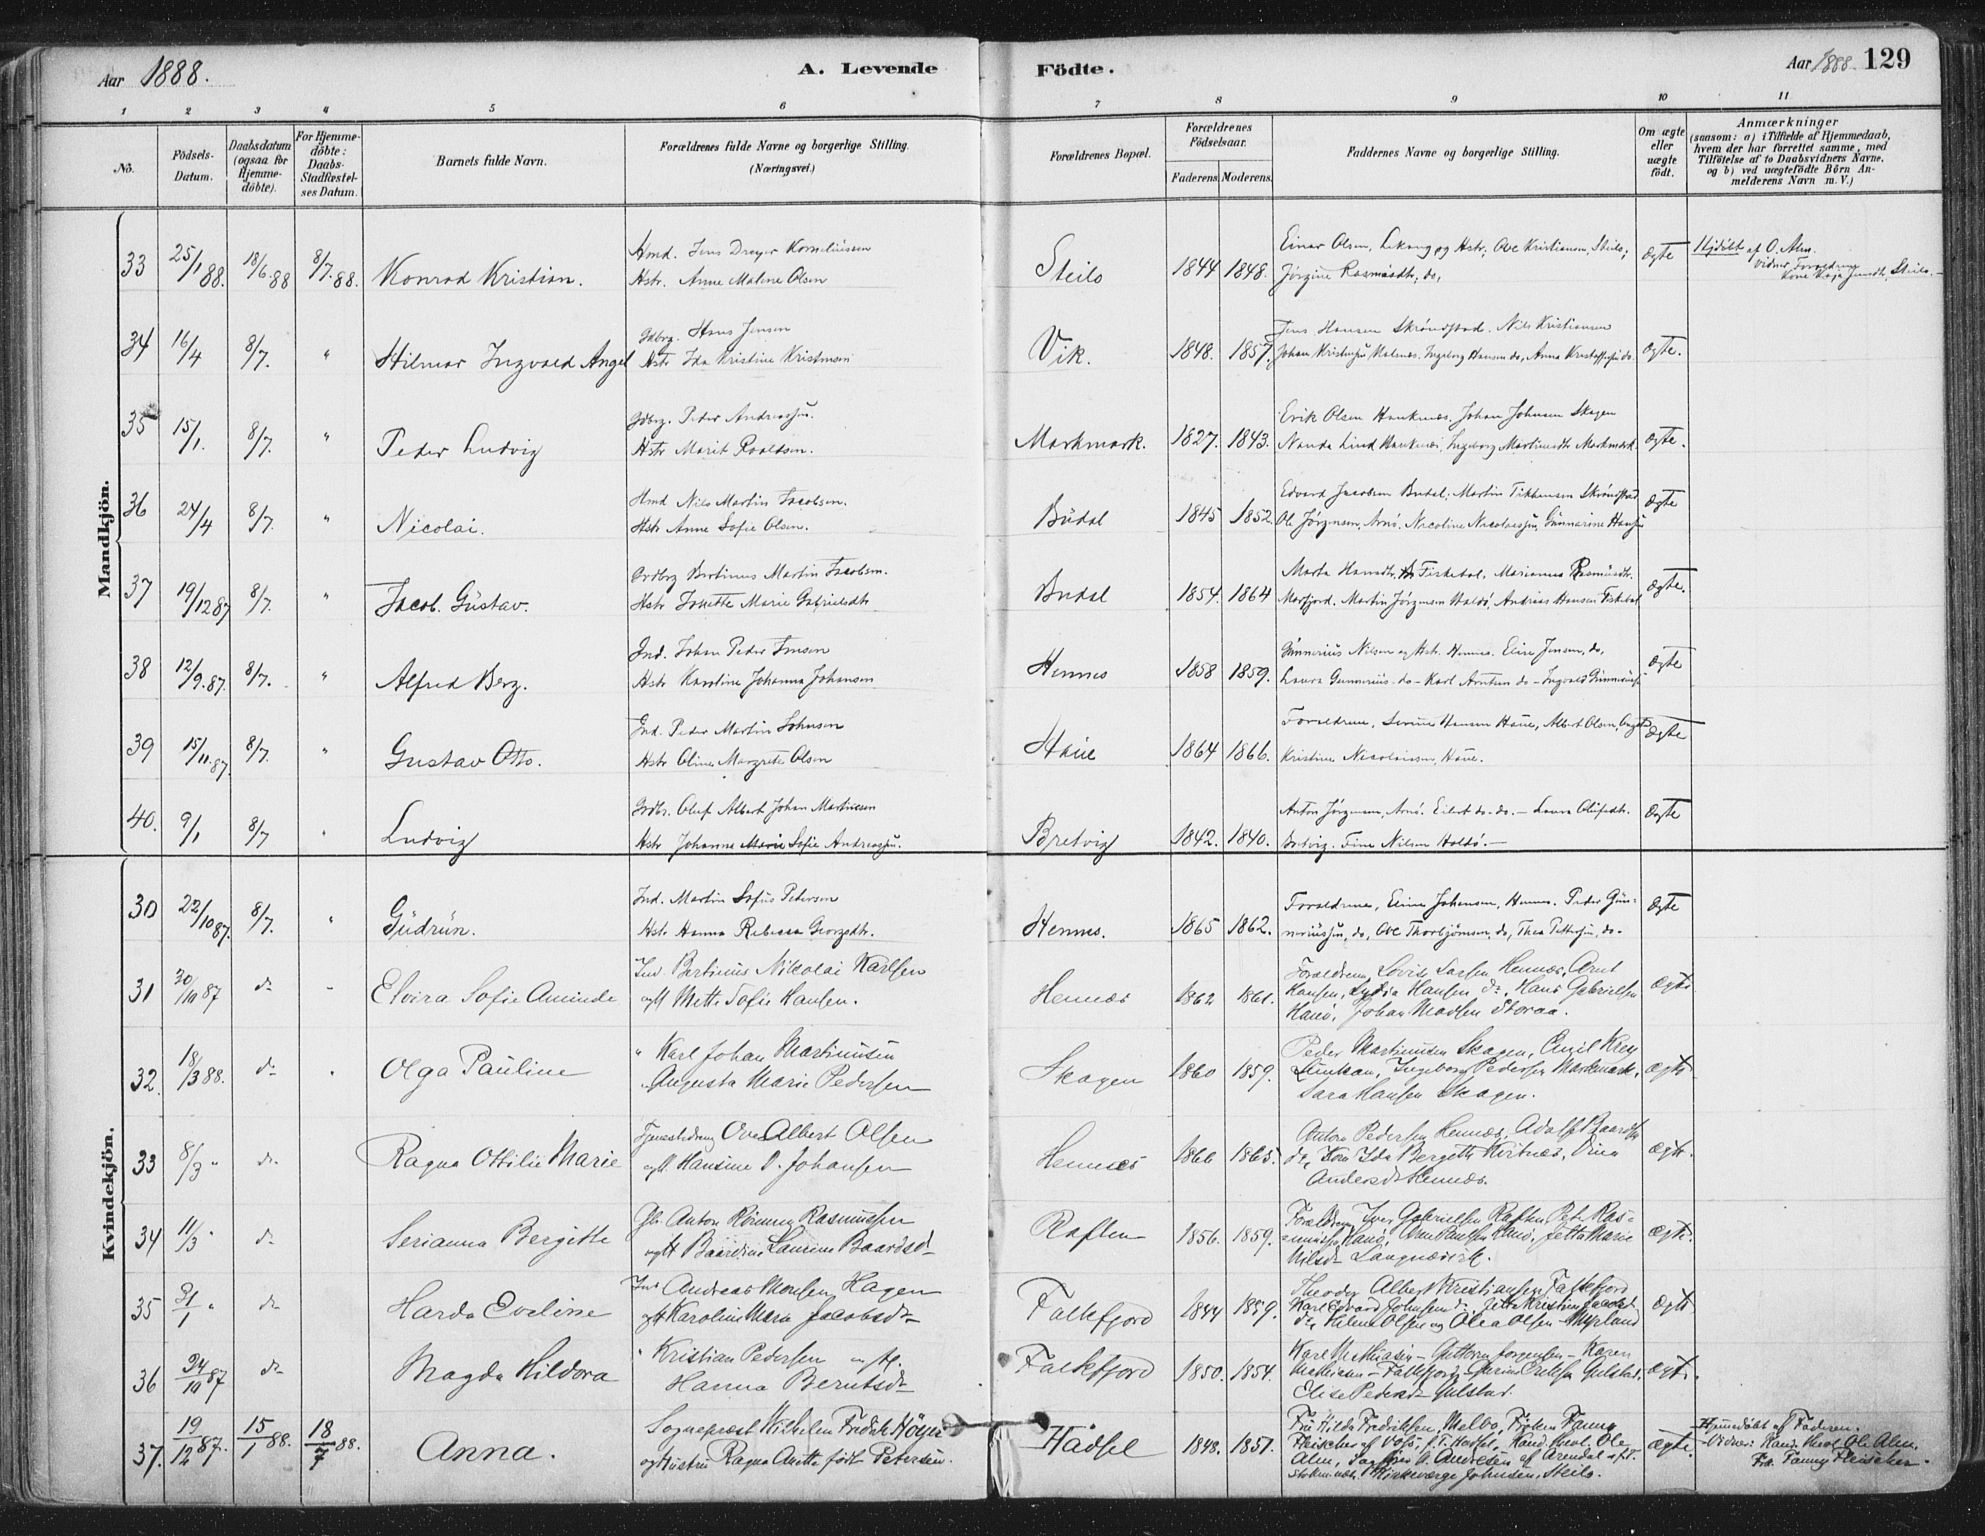 Aar 1888.
A. Levende Födte.
Aar 1888. 129
1 2 3 4 5 6 7 8 9 10 11
No.
Födsels-Datum.
Daabsdatum (ogsaa for Hjemme-döbte).
For Hjemme-döbte: Daabs-Stadfæstel-ses Datum.
Barnets fulde Navn.
Forældrenes fulde Navne og borgerlige Stilling.
(Næringsvei.)
Forældrenes Bopæl.
Forældrenes Födselsaar.
Faderens. Moderens.
Faddernes Navne og borgerlige Stilling.
Om ægte eller uægte født.
Anmærkninger
(saasom: a) i Tilfælde af Hjemmedaab,
hvem der har forrettet samme, med
Tilföielse af to Daabsvidners Navne.
og b) ved uægtefödte Börn An-
melderens Navn m. V.)
Mandkjön.
33 25/1 88. 18/6 88 8/7 88. Konrad Kristian.
Hmd. Jens Dreyer Korneliussen
Hstr. Anne Malene Olsen
Steilo 1844 1848.
Einar Olsen, Lekang og Hstr, Ove Kristiansen, Steilo;
Jørgine Rasmusdtr, do,
Ægte
Hjdöbt af O. Alm.
Vidner Forældrene
34 16/4 8/7. " Hilmar Ingvald Angel
Gdbrg. Hans Jensen
Hstr Ida Kristine Kristensen
Vik. 1848. 1857.
Jens Hansen Skröndstad. Nils Kristiansen
Ægte.
35 15/1. 8/7. " Peder Ludvig
Gdbrg. Peder Andreassen.
Hstr Marit Roaldsen.
Markmark. 1827. 1843.
Erik Olsen Hauknæs, Johan Johnsen Skagen
Nanda Lind Hauknæs, Ingeborg Martinusdtr Markmark
Ægte.
36 24/4 8/7. " Nicolai.
Hmd Nils Martin Jacobsen.
Hstr Anne Sofie Olsen.
Budal 1845 1852.
Edvard Jacobsen Budal, Martin Skröndstad
Ole Jörgensen, Arnö, Nicoline Nicolaisen, Gunnarine Hansen
Ægte
37 19/12 87 8/7. " Jacob Gustav.
Martin Jacobsen.
Hstr Jonette Marie Gabrielsdtr
Budal 1854. 1864
Marta Hansdtr, Fiskebøl, Marianne Rasmusdtr.
Morfjord. Martin Jörgensen Holdö, Andreas Hansen Fiskebøl
Ægte.
38 12/9. 87. 8/7. " Alfred Berg.
Ind. Johan Peder Jensen
Hstr Karoline Johanna Johansen
Hennes 1858 1859.
Gunnerius Nilsen og Hstr. Hennes. Elise Jensen, do,
Laura Gunnerius. do – Karl Arntsen do – Ingvald Gunneriusen
Ægte
39 15/11. 87. 8/7. " Gustav Otto.
Ind. Peder Martin Johnsen
Hstr Oline Margrete Olsen
Haue 1864 1866.
Forældrene, Hansen Haue, Albert Olsen,
Kristine Nicolaisen, Haue.
Ægte
40. 9/1 8/7 Ludvig
Oluf Albert Johan Martinesen
Hstr Johanna Marie Sofie Andreassen.
Bretvig 1842. 1840.
Anton Jörgensen, Arnö. Eilert do. do. – Laura Olufsdtr.
Bretvig. Fine Nilsen Holdö. –
Ægte
Kvindekjön.
30 22/10 87. 8/7. " Gudrun.
Ind. Martin Sofus Petersen
Hstr Hanna Rebecca Georgsdtr.
Hennes. 1865 1862.
Forældrene, Eline Johansen, Hennes. Peder Gun-
neriussen, do, Ove Thorbjörnsen, do, Thea Pettersen, do.
Ægte
31 30/10 87 do – Elvira Sofie Aminde
Ind. Bertinus Nikolai Karlsen
og H Mette Sofie Hansen.
Hennæs 1862 1861.
Forældrene, Lovis Larsen Hennæs, Arnt
Hansen, Lydia Hansen do, Hans Gabrielsen
Hanö, Johan Madsen Storaa.
Ægte
32. 18/3 88. do Olga Pauline
" Karl Johan Martinusen
Augusta Marie Pedersen
Skagen 1860 1859.
Peder Martinusen Skagen, Emil Krey
Ingeborg Pedersen Markmark,
Sara Hansen Skagen.
Ægte
33 8/3 " do Ragna Ottilie Marie
Tjenestedreng Ove Albert Olsen
og H. Hansine O. Johansen
Hennæs 1866 1865.
Anton Pedersen Hennæs, Adolf Baardsen
do, Ida Bergitte Hvitnæs, Orina
Andersd. Hennæs.
Ægte.
34 11/3 " do Serianna Bergitte
Anton Rasmussen
og H Baardine Laurine Baardsd.
Raften 1856. 1859.
Forældrene, Iver Gabrielsen Raften, Pet. Ras-
mussen Hanö, Hanö, Jetta Marie
Nilsd.
Ægte.
35 31/1 " do Harda Eveline
Ind Andreas Monsen Hagen
og H Karoline Marie Jacobsd.
Falkefjord 1844 1859.
Theodor Albert Kristiansen Falkefjord
Karl Edvard Johnsen do, Jette Kristine Jacobsd.
do, Olsen og Olea Olsen Myrland
Ægte
36 24/10 87 do Magda Hildora
" Kristian Pedersen og H.
Hanna Berntsd.
Falkefjord 1850. 1854.
Karl Mathiasen – Guttorm Jorgensen – Karen
Mathiasen – Falkefjord, Gulstad,
Elise Pedersd. Gulstad.
Ægte.
37. 19/12 87. 15/1 88. 18/7 88. Anna.
Sogneprest Wilhelm Fredrik Höyer
og Hustru Ragna Anette født Petersen.
Hadsel 1848. 1851.
Fru Hilda Fredriksen, Melbo, Fröken Fanny
Fleischer af Voss, p. T. Hadsel, Kand. theol. Ole
Alm, Andresen af Arendal
Stokmarknes, Kirkeværge Johnsen, Steilo.
Ægte.
Hjemmedöbt af Faderen.
Vidner: Kand. theol. Ole Alm.
Frk. Fanny Fleischer.